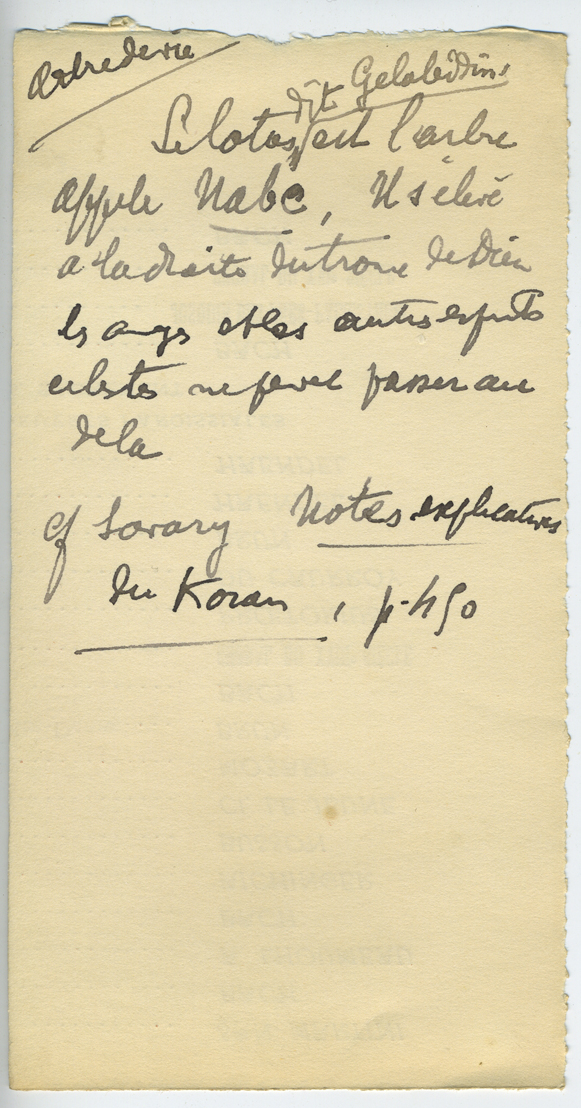 Arbre de vie
dit Gelaleddin
Le lotos, est l'arbre
appele Nabc, Il s'élève
a la droite du trone de Dieu
les anges et les autres esprits
celestes ne peuvent passer au
dela
cf Savary Notes explicatives
du Koran, p. 450